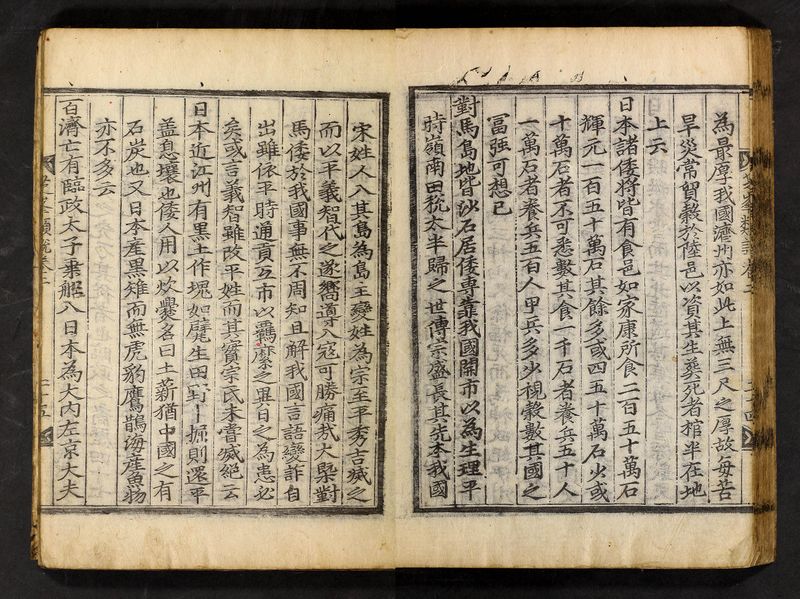 為最厚我國濟州亦如此上無三尺之厚故每苦
旱災常貿穀於陸邑以資其生葬死者棺半在地
上云
日本諸倭將皆有食邑如家康所食二百五十萬石
輝元一百五十萬石其餘多或四五十萬石少或
十萬石者不可悉數其食一千石者養兵五十人
一萬石者養兵五百人甲兵多少視穀數其國之
富强可想已
對馬島地皆沙石居倭專靠我國開市以為生理平
時嶺南田稅太半歸之世傳宗盛長其先本我國
宋姓人入其島為島王變姓為宗至平秀吉滅之
而以平義智代之遂嚮導入寇可勝痛哉大槩對
馬倭於我國事無不周知且解我國言語變詐自
出雖依平時通貢互市以羈縻之異日之為患必
矣或言義智雖改平姓而其實宗氏未嘗滅絕云
日本近江州有黑土作塊如甓生田野中掘則還平
盖息壤也倭人用以炊爨名曰土薪猶中國之有
石炭也又日本產黑雉而無虎豹鷹鵲海產魚物
亦不多云
百濟亡有臨政太子乘船入日本為大內左京大夫
芝峯類說卷二
二十五